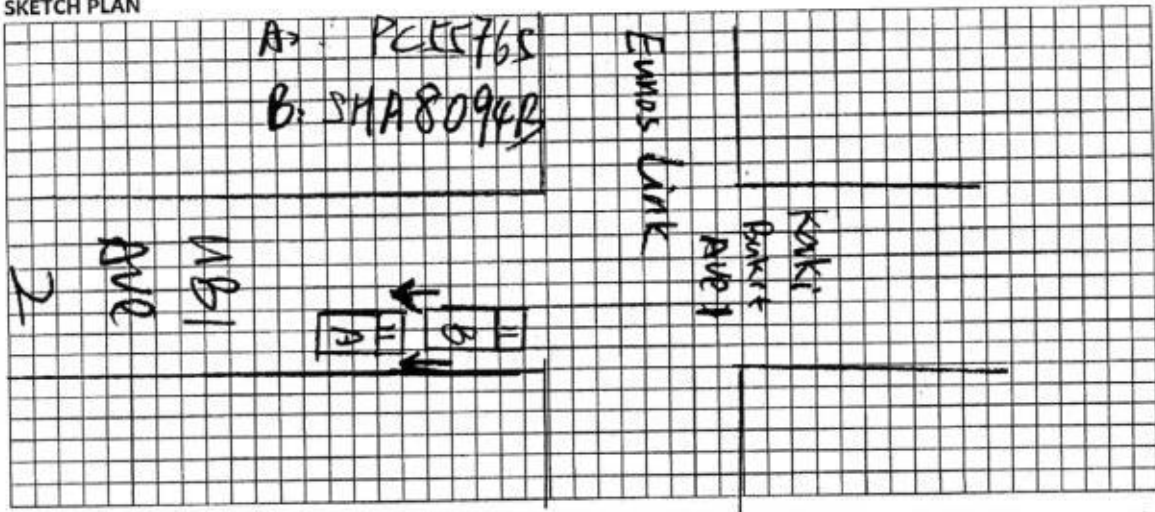 SKETCH PLAN
A: PC5576S
B: SHA8094B
Eunos Link
Kaki
Bukit
UBI
AVE
2
A
B